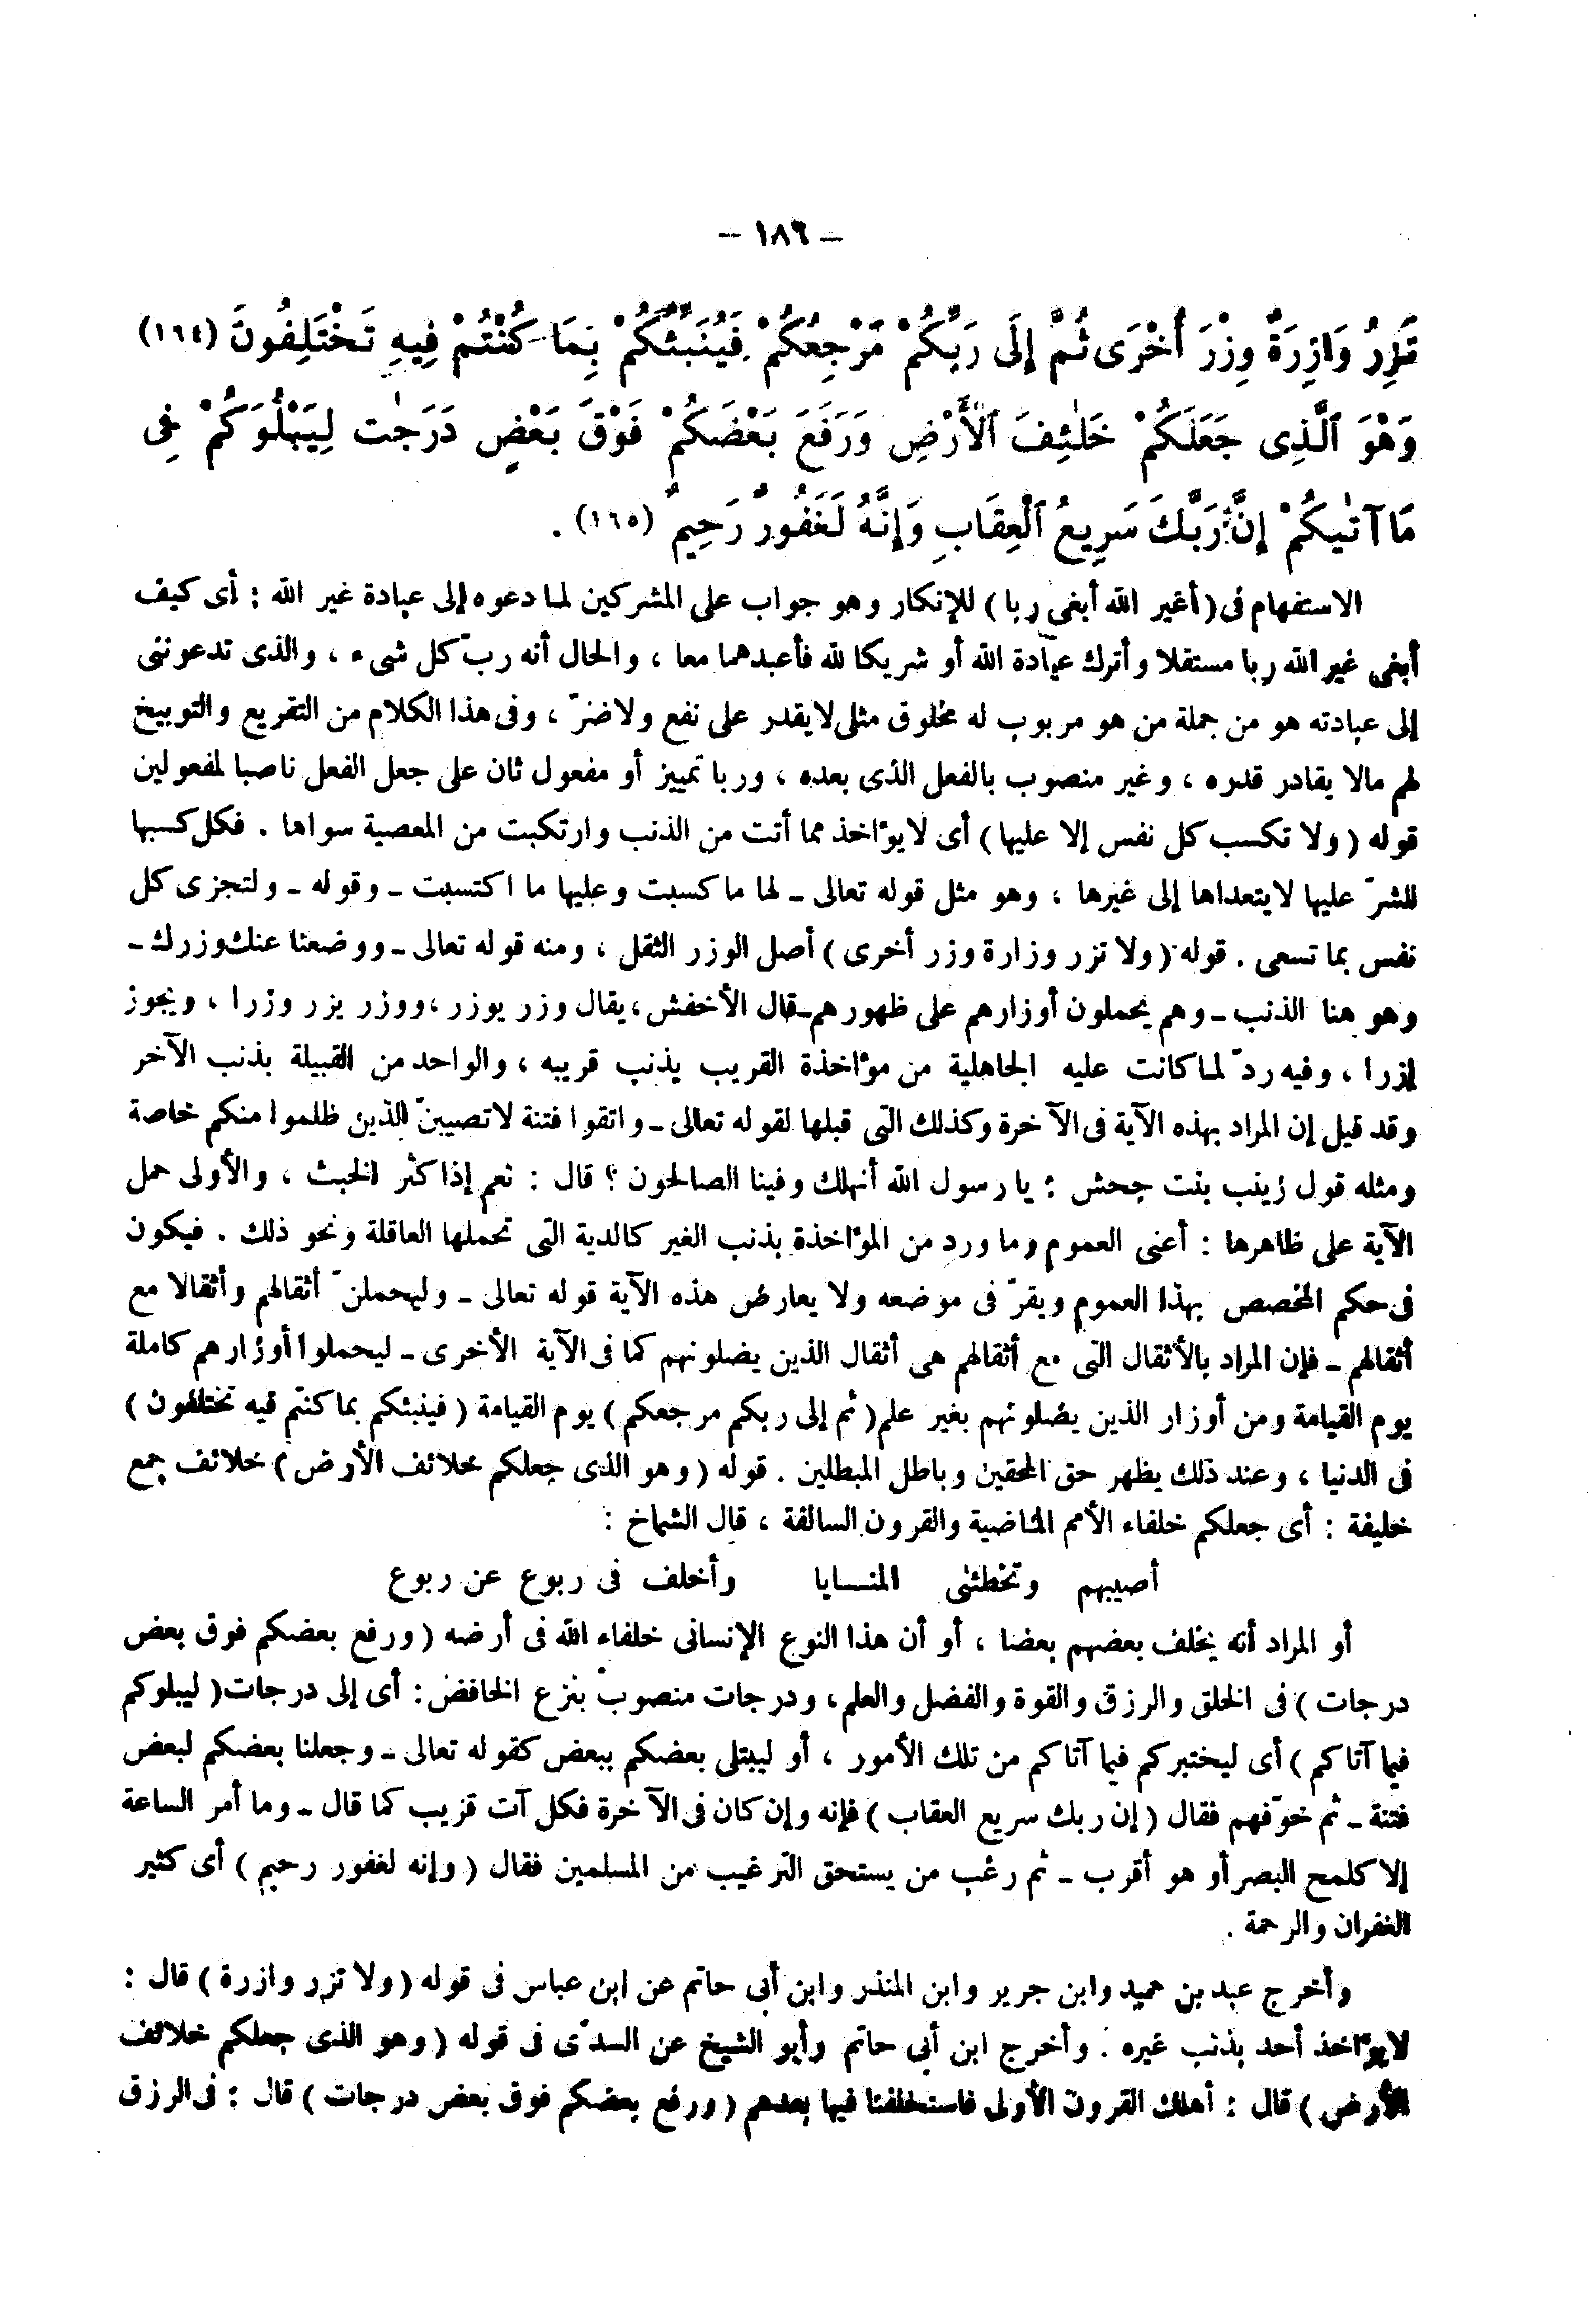 – ١٨٦ –
تَزِرُ وَازِرَةٌ وِزْرَ أُخْرَى ثُمَّ إِلَى رَبِّكُمْ مَرْجِعُكُمْ فَيُنَبِّئُكُمْ بِمَا كُنْتُمْ فِيهِ تَخْتَلِفُونَ (١٦٤)
وَهْوَ ٱلَّذِى جَعَلَكُمْ خَلٰئِفَ ٱلْأَرْضِ وَرَفَعَ بَعْضَكُمْ فَوْقَ بَعْضٍ دَرَجٰت لِيَبْلُوَكُمْ فِى
مَا آتٰيكُمْ إِنَّ رَبَّكَ سَرِيعُ ٱلْعِقَابِ وَإِنَّهُ لَغَفُورٌ رَحِيمٌ (١٦٥) .
الاستفهام فى (أغير الله أبغى ربا) للإنكار وهو جواب على المشركين لما دعوه إلى عبادة غير الله : أى كيف
أبغى غير الله ربا مستقلا وأترك عبادة الله أو شريكا لله فأعبدهما معا ، والحال أنه ربّ كل شىء ، والذى تدعوننى
إلى عبادته هو من جملة من هو مربوب له مخلوق مثلى لايقدر على نفع ولاضرّ ، وفى هذا الكلام من التقريع والتوبيخ
لهم مالا يقادر قدره ، وغير منصوب بالفعل الذى بعده ، وربا تمييز أو مفعول ثان على جعل الفعل ناصبا لمفعولين
قوله (ولا تكسب كل نفس إلا عليها) أى لايؤاخذ مما أتت من الذنب وارتكبت من المعصية سواها . فكل كسبها
للشرّ عليها لايتعداها إلى غيرها ، وهو مثل قوله تعالى ـ لها ما كسبت وعليها ما اكتسبت ـ وقوله ـ ولتجزى كل
نفس بما تسعى . قوله (ولا تزر وزارة وزر أخرى) أصل الوزر الثقل ، ومنه قوله تعالى ـ ووضعنا عنك وزرك ـ
وهو هنا الذنب ـ وهم يحملون أوزارهم على ظهورهم ـ قال الأخفش ، يقال وزر يوزر ، ووزر يزر وزرا ، ويجوز
إزرا ، وفيه ردّ لما كانت عليه الجاهلية من مؤاخذة القريب بذنب قريبه ، والواحد من القبيلة بذنب الآخر
وقد قيل إن المراد بهذه الآية فى الآخرة وكذلك التى قبلها لقوله تعالى ـ واتقوا فتنة لاتصيبنّ الذين ظلموا منكم خاصة
ومثله قول زينب بنت جحش : يا رسول الله أنهلك وفينا الصالحون ؟ قال : نعم إذا كثر الخبث ، والأولى حمل
الآية على ظاهرها : أعنى العموم وما ورد من المؤاخذة بذنب الغير كالدية التى تحملها العاقلة ونحو ذلك . فيكون
فى حكم المخصص بهذا العموم ويقرّ فى موضعه ولا يعارض هذه الآية قوله تعالى ـ وليحملنّ أثقالهم وأثقالا مع
أثقالهم ـ فإن المراد بالأثقال التى مع أثقالهم هى أثقال الذين يضلونهم كما فى الآية الأخرى ـ ليحملوا أوزارهم كاملة
يوم القيامة ومن أوزار الذين يضلونهم بغير علم (ثم إلى ربكم مرجعكم) يوم القيامة (فينبئكم بما كنتم فيه تختلفون)
فى الدنيا ، وعند ذلك يظهر حق المحقين وباطل المبطلين . قوله (وهو الذى جعلكم خلائف الأرض) خلائف جمع
خليفة : أى جعلكم خلفاء الأمم الماضية والقرون السالفة ، قال الشماخ :
أصيبهم وتخطئنى المنـــايا وأخلف فى ربوع عن ربوع
أو المراد أنه يخلف بعضهم بعضا ، أو أن هذا النوع الإنسانى خلفاء الله فى أرضه (ورفع بعضكم فوق بعض
درجات) فى الخلق والرزق والقوة والفضل والعلم ، ودرجات منصوب بنزع الخافض : أى إلى درجات (ليبلوكم
فيما آتاكم) أى ليختبركم فيما آتاكم من تلك الأمور ، أو ليبتلى بعضكم ببعض كقوله تعالى ـ وجعلنا بعضكم لبعض
فتنة ـ ثم خوّفهم فقال (إن ربك سريع العقاب) فإنه وإن كان فى الآخرة فكل آت قريب كما قال ـ وما أمر الساعة
إلا كلمح البصر أو هو أقرب ـ ثم رغب من يستحق الترغيب من المسلمين فقال (وإنه لغفور رحيم) أى كثير
الغفران والرحمة .
وأخرج عبد بن حميد وابن جرير وابن المنذر وابن أبى حاتم عن ابن عباس فى قوله (ولا تزر وازرة) قال :
لايؤاخذ أحد بذنب غيره . وأخرج ابن أبى حاتم وأبو الشيخ عن السدّى فى قوله (وهو الذى جعلكم خلائف
الأرض) قال : أهلك القرون الأولى فاستخلفنا فيها بعدهم (ورفع بعضكم فوق بعض درجات) قال : فى الرزق